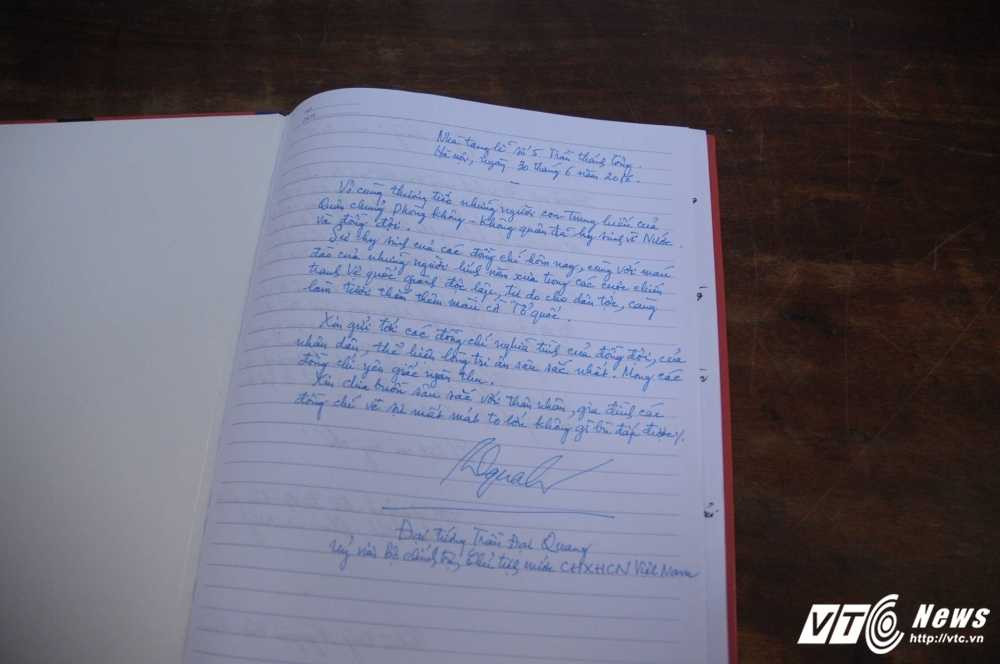 Nhà tang lễ số 5 Trần Thánh Tông.
Hà Nội, ngày 30 tháng 6 năm 2016.
Vô cùng thương tiếc những người con trung hiếu của
Quân chủng Phòng không - Không quân đã hy sinh vì Nước
và đồng đội.
Sự hy sinh của các đồng chí hôm nay, cùng với máu
đào của những người lính năm xưa trong các cuộc chiến
tranh vệ quốc giành độc lập, tự do cho dân tộc, càng
làm tươi thắm thêm màu cờ Tổ quốc.
Xin gửi tới các đồng chí nghĩa tình của đồng đội, của
nhân dân, thể hiện lòng tri ân sâu sắc nhất. Mong các
đồng chí yên giấc ngàn thu.
Xin chia buồn sâu sắc với thân nhân, gia đình các
đồng chí về sự mất mát to lớn không gì bù đắp được./.
Đại tướng Trần Đại Quang
Uỷ viên Bộ Chính trị, Chủ tịch nước CHXHCN Việt Nam
VTC News
http://vtc.vn